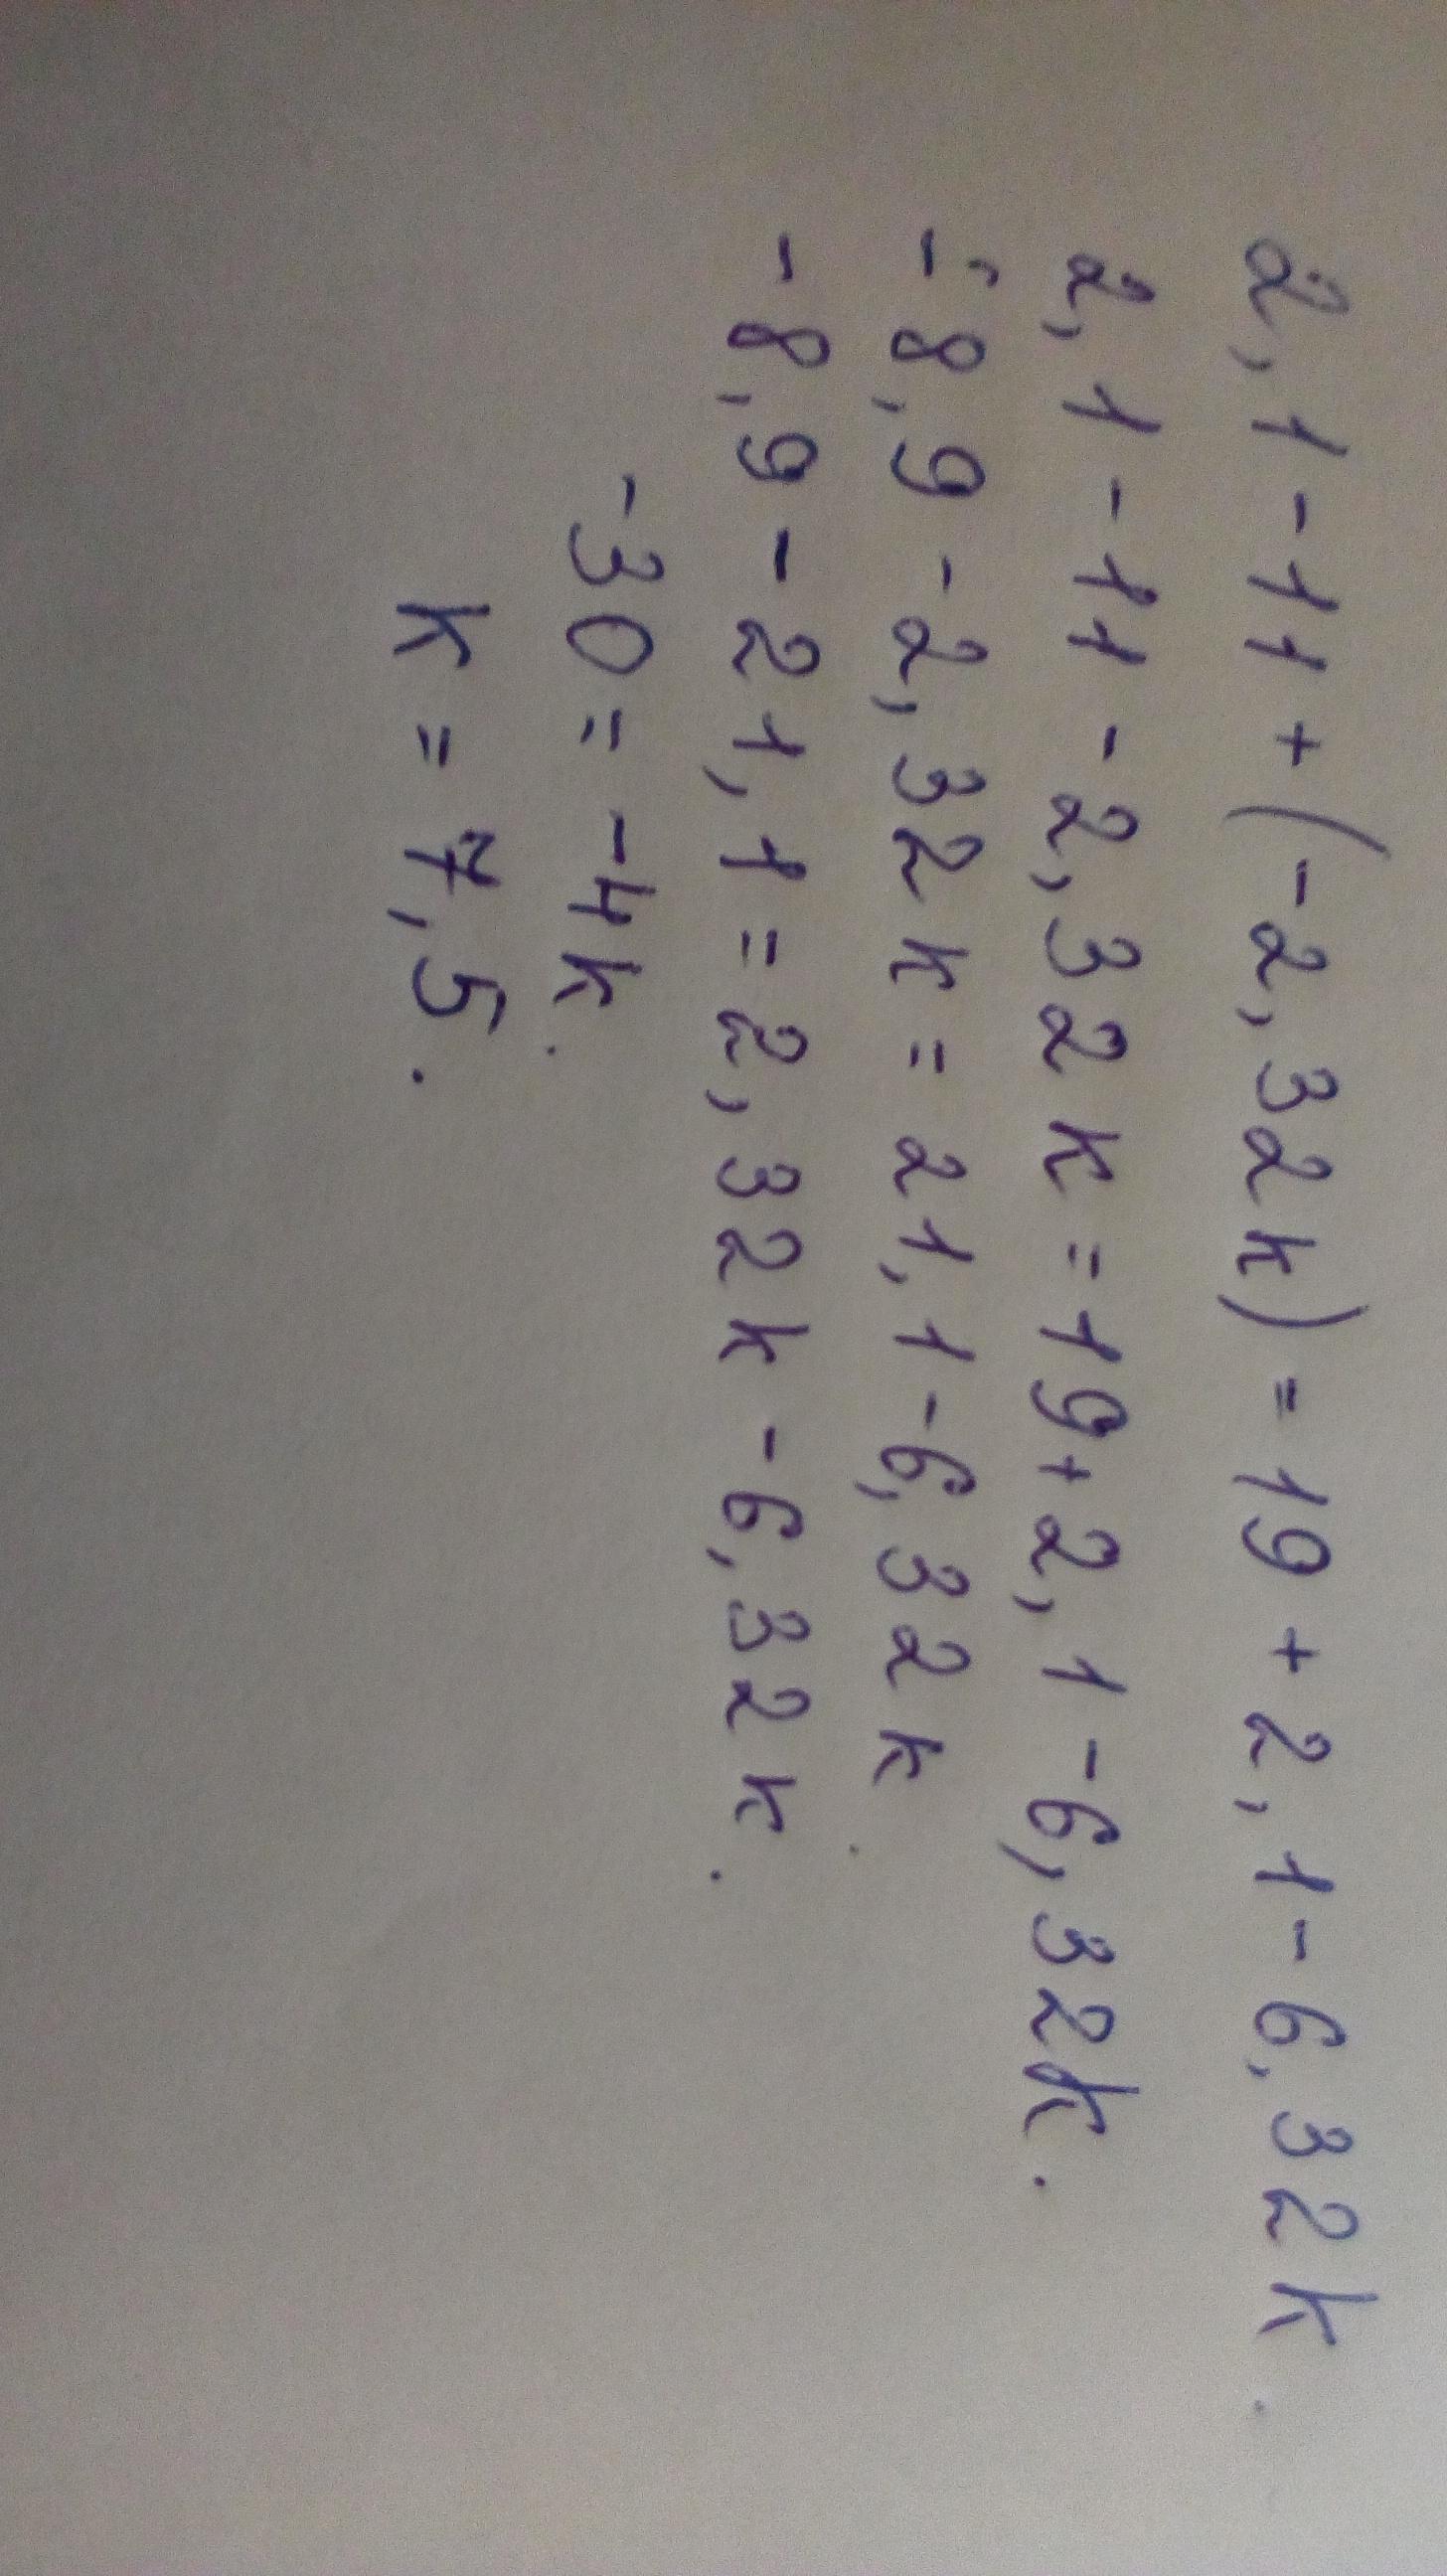 2,1-11+(-2,32k)=19+2,1-6,32k.
2,1-11-2,32k=19+2,1-6,32k.
-8,9-2,32k=21,1-6,32k.
-8,9-21,1=2,32k-6,32k.
-30=-4k.
k=7,5.